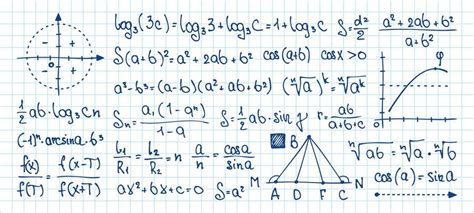 log₃(3c)=log₃3+log₃c=1+log₃c
S=d²/2
a²+2ab+b²/a+b²
S(a+b)²=a²+2ab+b²
cos(a+b)
cosx>0
a³-b³=(a-b)(a²+ab+b²)
(ⁿ√a)ᵏ=ⁿ√aᵏ
φ
1/2 ab·log₃cn
Sₙ=a₁(1-qⁿ)/1-q
S=1/2 ab·sin f
r=ab/a+b+c
(-1)ⁿ·arcsina·b³
f(x)/f(T)=f(x-T)/f(x+T)
L₁/R₁=L₂/R₂=n
a/n=cosa/sina
B
ⁿ√ab=ⁿ√a·ⁿ√b
ax²+bx+c=0
S=a²
M A D F C N
cos(a)=sina